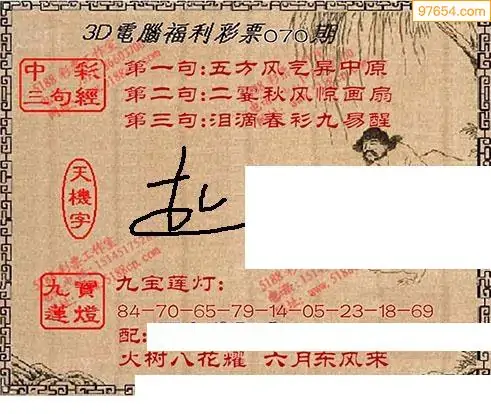 97654.com
3D電腦福利彩票070期
中彩
三句經
第一句:五方风乞昇中原
第二句:二霎秋风惊画扇
第三句:泪滴春衫九易醒
天機字
九寶
蓮燈
九宝莲灯:
84-70-65-79-14-05-23-18-69
配:
火树八花耀 六月东风来